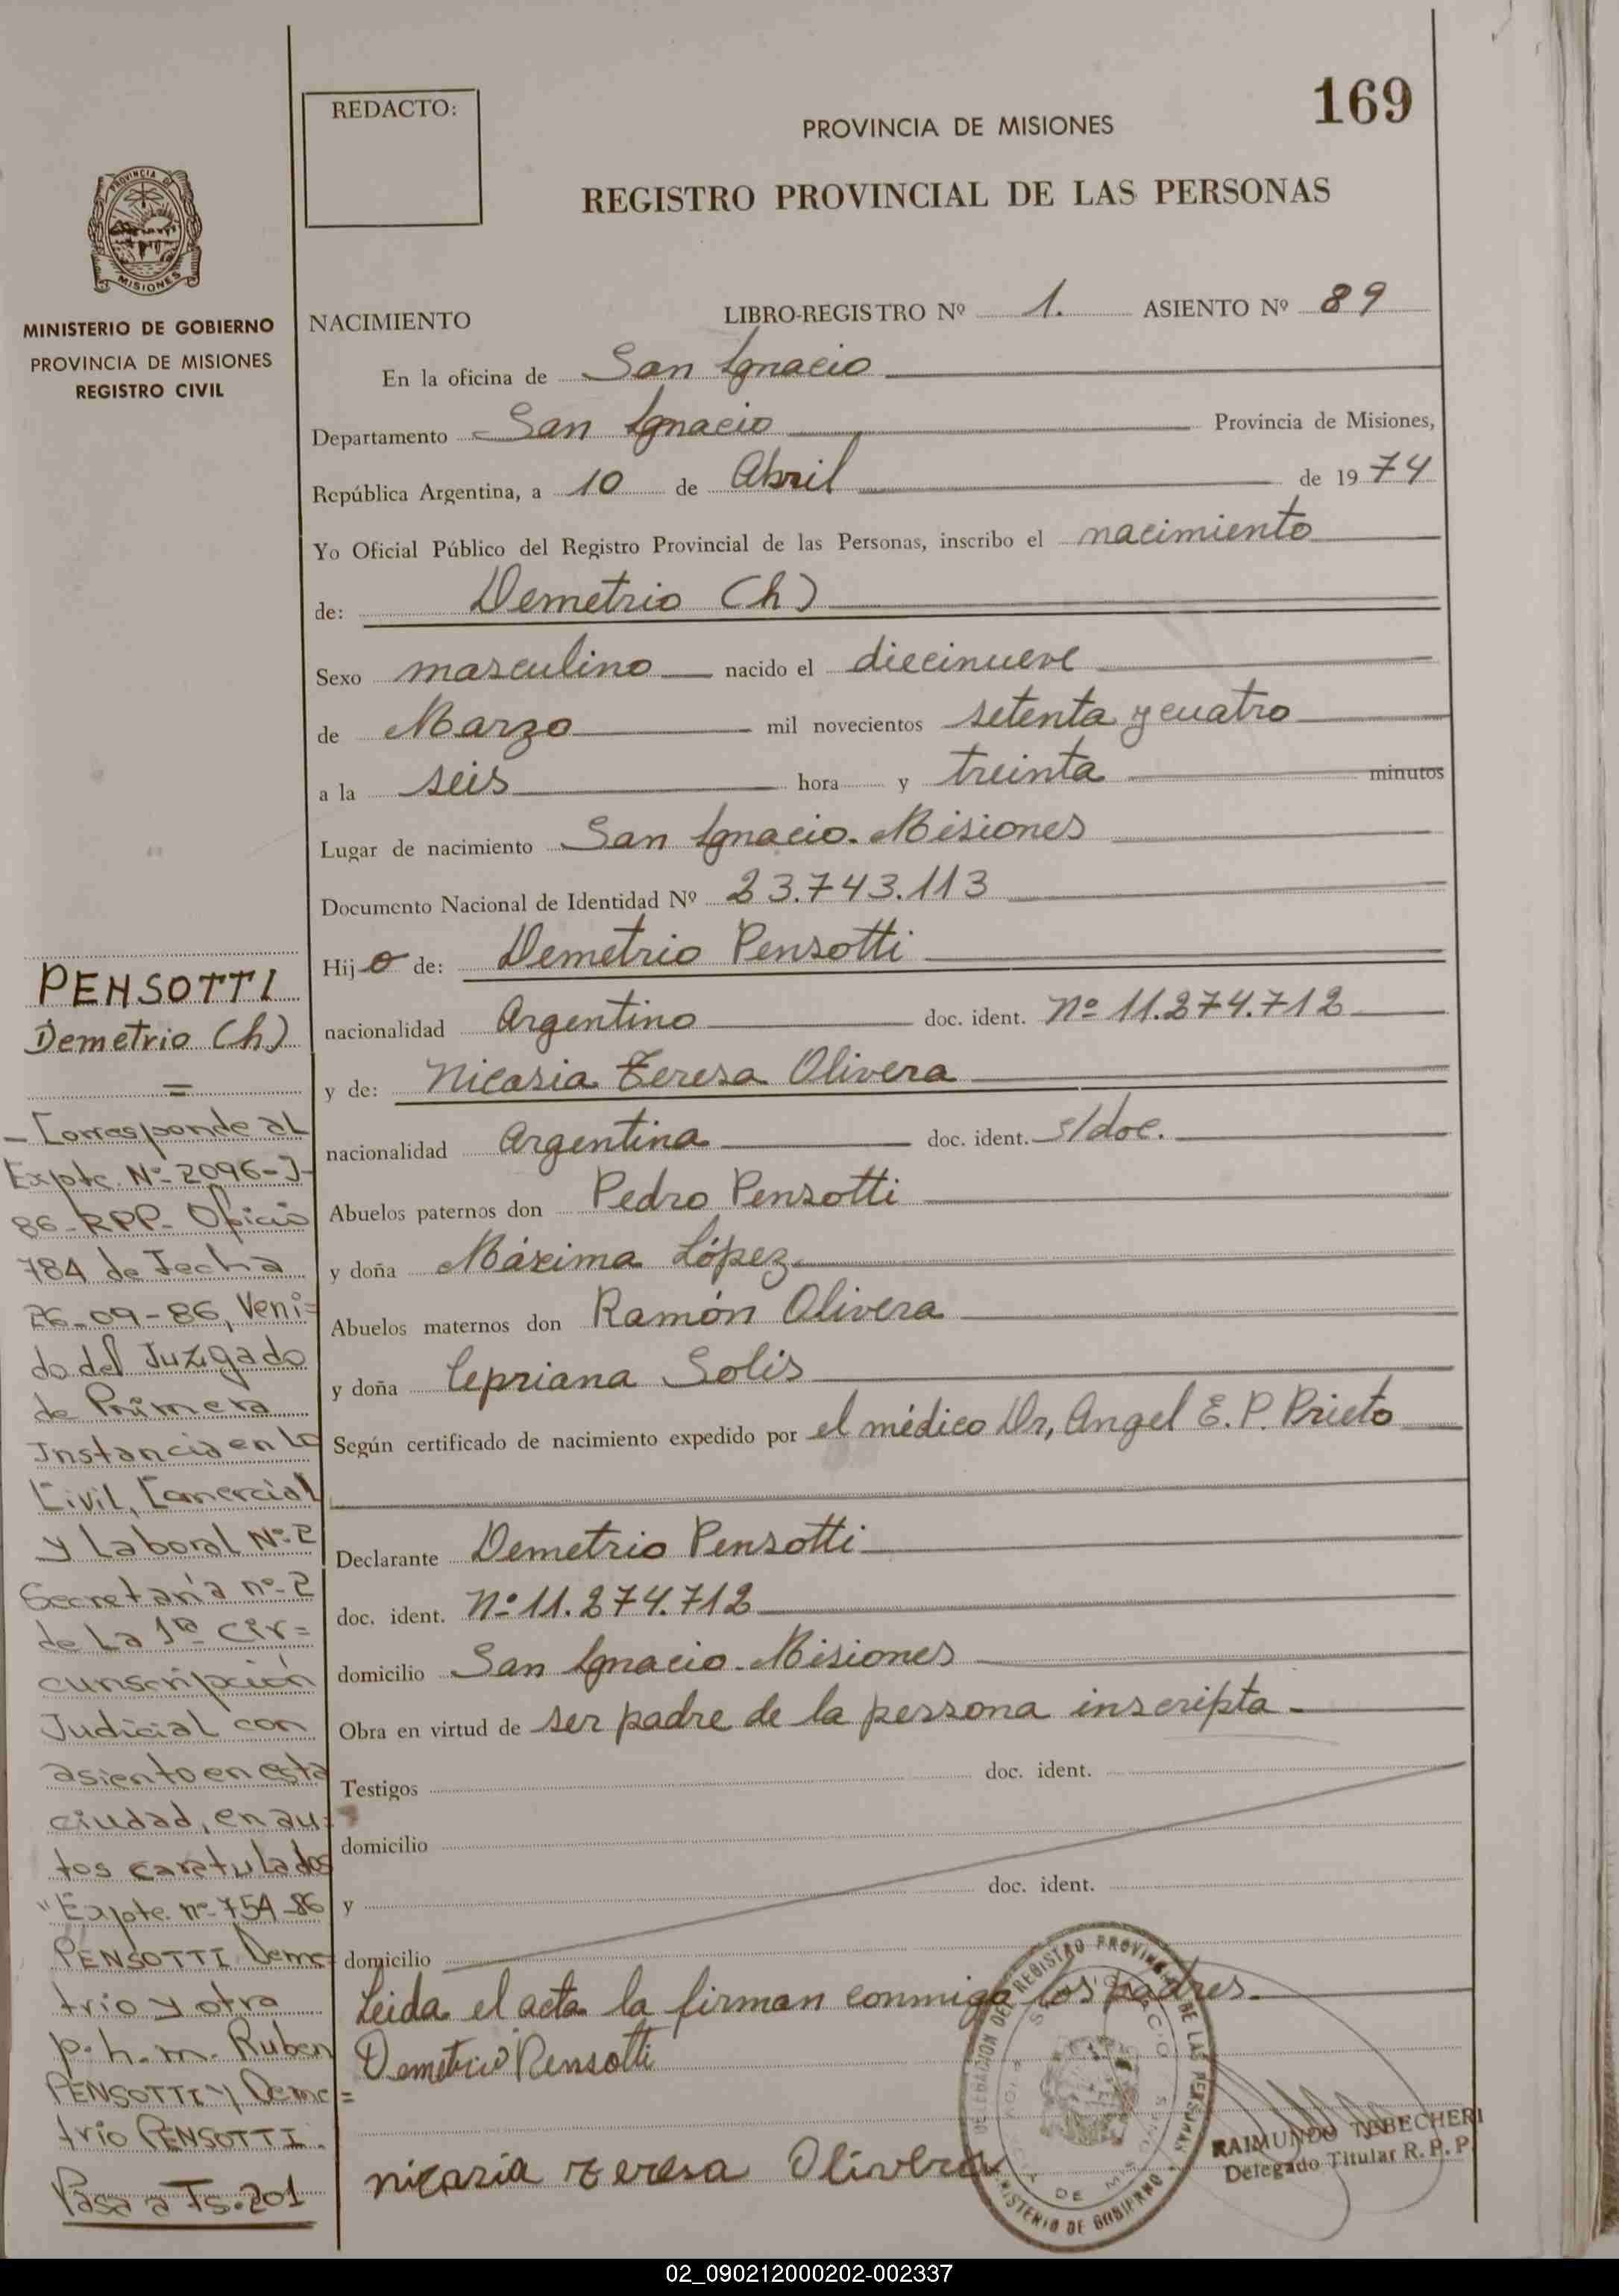 169
REDACTO:
PROVINCIA DE MISIONES
REGISTRO PROVINCIAL DE LAS PERSONAS
PROVINCIA DE
MISIONES
MINISTERIO DE GOBIERNO
PROVINCIA DE MISIONES
REGISTRO CIVIL
NACIMIENTO LIBRO-REGISTRO Nº 1. ASIENTO Nº 89
En la oficina de San Ignacio
Departamento San Ignacio Provincia de Misiones,
República Argentina, a 10 de Abril de 1974
Yo Oficial Público del Registro Provincial de las Personas, inscribo el nacimiento
de: Demetrio (h)
Sexo masculino nacido el diecinueve
de Marzo mil novecientos setenta y cuatro
a la seis hora y treinta minutos
Lugar de nacimiento San Ignacio. Misiones
Documento Nacional de Identidad Nº 23.743.113
Hijo de: Demetrio Pensotti
nacionalidad Argentino doc. ident. Nº 11.274.712
y de: Nicasia Teresa Olivera
nacionalidad Argentina doc. ident. s/doc.
Abuelos paternos don Pedro Pensotti
y doña Máxima López
Abuelos maternos don Ramón Olivera
y doña Cepriana Solis
Según certificado de nacimiento expedido por el médico Dr, Angel E. P. Prieto
Declarante Demetrio Pensotti
doc. ident. Nº 11.274.712
domicilio San Ignacio. Misiones
Obra en virtud de ser padre de la persona inscripta.
Testigos doc. ident.
domicilio
y doc. ident.
domicilio
Leida el acta la firman conmigo los padres.
Demetrio Pensotti
nicasia teresa Olivera
DELEGACION DEL REGISTRO PROVINCIAL DE LAS PERSONAS
MINISTERIO DE GOBIERNO
RAIMUNDO TEBECHERI
Delegado Titular R. P. P.
PENSOTTI
Demetrio (h)
=
- Corresponde al
Expte. Nº 2096-J-
86-RPP- Oficio
784 de Fecha
26-09-86, Veni=
do del Juzgado
de Primera
Instancia en lo
Civil, Comercial
y Laboral Nº 2
Secretaría nº 2
de la 1ra Cir=
cunscripción
Judicial con
asiento en esta
ciudad, en au=
tos caratulados
"Expte. nº 754-86
PENSOTTI Deme=
trio y otra
p.h.m. Ruben
PENSOTTI y Deme=
trio PENSOTTI.
Pasa a Fs. 201
02_090212000202-002337